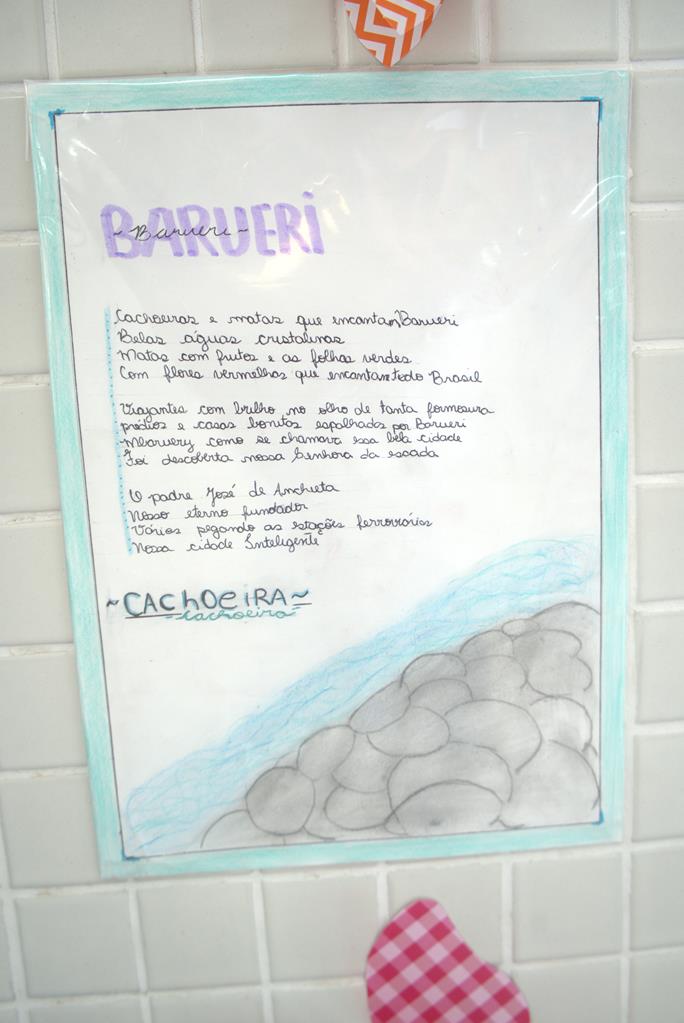 BARUERi
~Barueri~
Cachoeiras e matas que encantam Barueri
Belas águas cristalinas
Matas com frutos e as folhas verdes
Com flores vermelhas que encantam todo Brasil
Viajantes com brilho no olho de tanta formosura
prédios e casas bonitas espalhadas por Barueri
Mbaruery como se chamava essa bela cidade
Foi descoberta nossa Senhora da escada
O padre José de Anchieta
Nosso eterno fundador
Vários pegando as estações ferroviárias
Nossa cidade Inteligente
~CACHOEiRA~
cachoeira